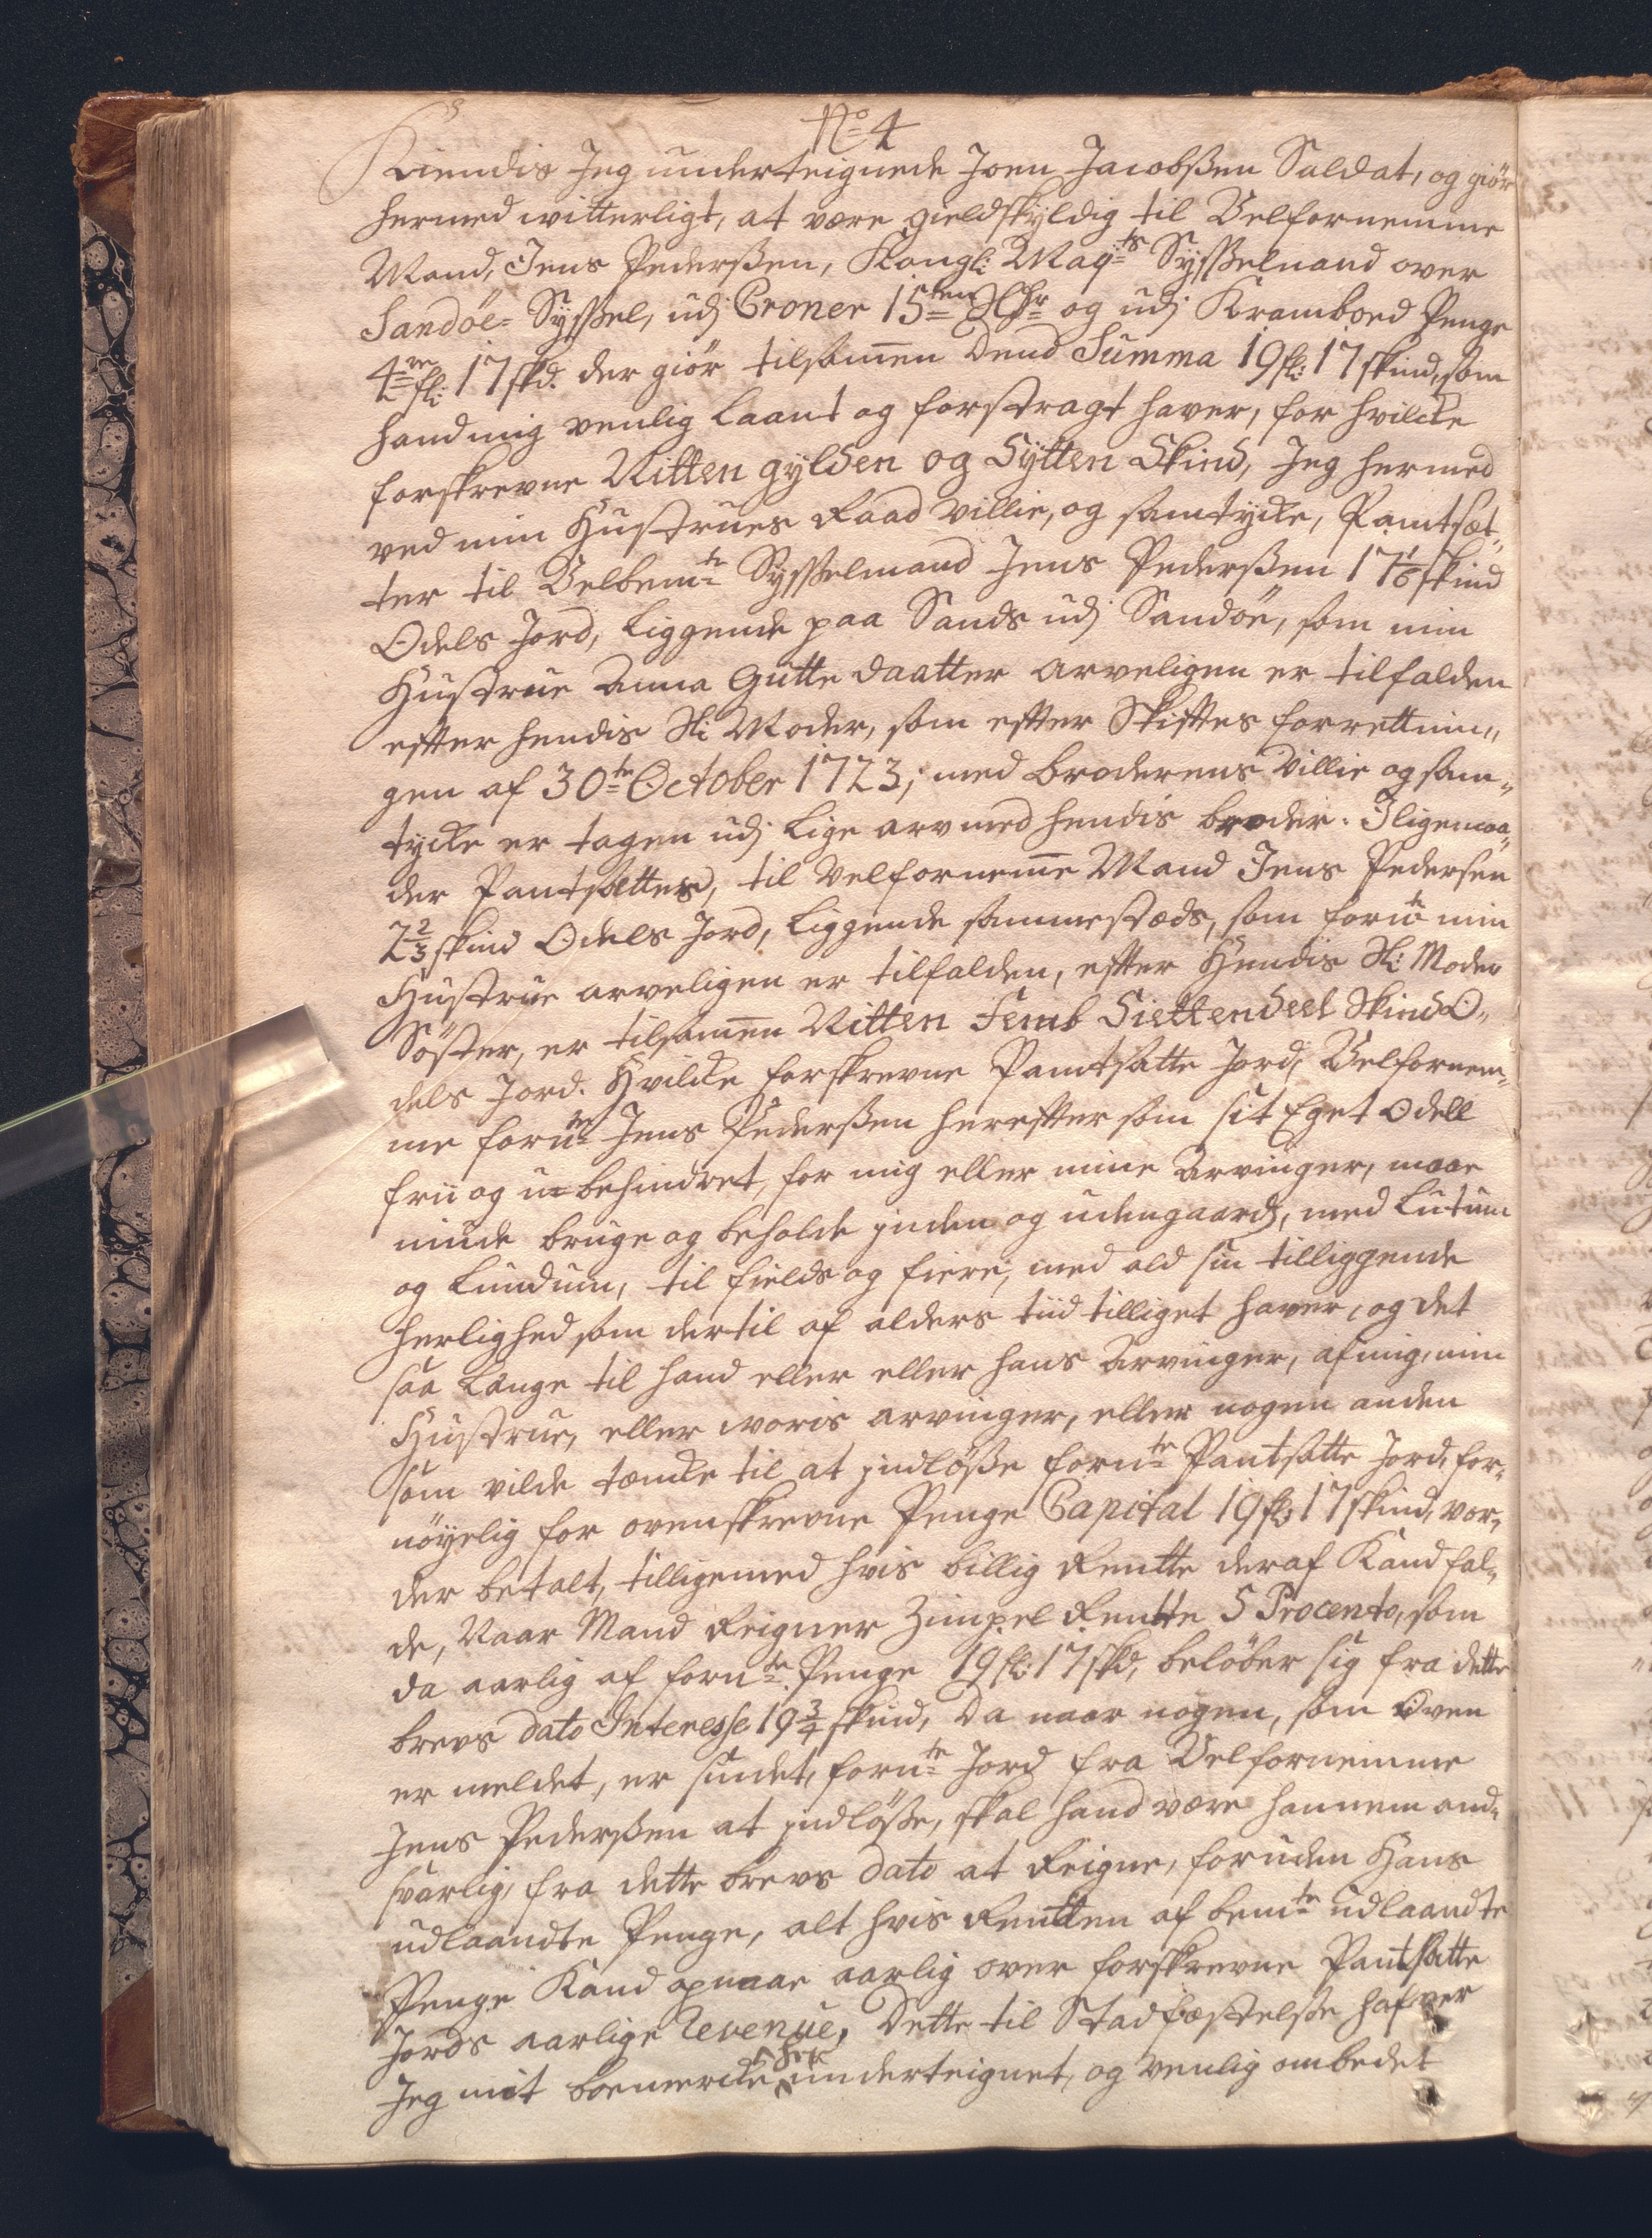 No 4
Kiendis Jeg underteignede Joen Jacobßen Saldat, og giör
hermed witterligt, at være gieldskyldig til Velfornemme
Mand, Jens Pederßen, Kongl: Mayts Sysselmand over
Sandöe- Syssel, udj Croner 15ten og udj Kramboed Penge
4re fl: 17 skd. der giör tilsamen Dend Summa 19 fl: 17 skind, som
hand mig venlig laant og forstragt haver, for hvilcke
forskrevne Nitten gylden og Sytten Skind, Jeg hermed
ved min Hustrues Raad villie, og samtycke, Pantsæt„
ter til Velbemte Sysselmand Jens Pederßen 17 1/6 skind
Odels Jord, liggende paa Sands udj Sandöe, som min
Hustrue Anna Gutte daatter arveligen er tilfalden
efter hendis Sl: Moder, som efter Skiftes forrettnin„
gen af 30te October 1723, med broderens villie og sam„
tycke er tagen udj lige arv med hendis broder. Iligemaa„
der Pantsættes, til Velfornemē Mand Jens Pedersen
2 2/3 skind Odels Jord, liggende sammestæds, som fornte min
Hustrue arveligen er tilfalden, efter Hendis Sl: Moder
Söster, er tilsamen Nitten Femb Siettendeel Skind O„
dels Jord. Hvilcke forskrevne Pantsatte Jord, Velfornem„
me fornte Jens Pederßen herefter som sit Eget Odell
frii og ubehindret, for mig eller mine Arvinger, maae
niude bruge og beholde inden og udengaards, med Lutum
og Lundum, til fields og fiere, med ald sin tilliggende
herlighed som dertil af alders tiid tilliget haver, og det
saa længe til hand eller eller hans Arvinger, af mig, min
Hustrue, eller woris arvinger, eller nogen anden
som vilde tæncke til at indlöße fornte Pantsatte Jord, for„
nöyelig for ovenskrevne Penge Capital 19 fl: 17 skind, vor„
der betalt, tilligemed hvis billig Rentte deraf Kand fal„
de, Naar Mand Reigner Zimpel Rentte 5 Procento, som
da aarlig af fornte Penge 19 fl: 17 skd, belöber sig fra dette
brevs dato Interesse 19 3/4 skind, Da naar nogen, som Oven
er meldet, er sindet, fornte Jord fra Velfornemme
Jens Pederßen at indlöße, skal hand være hannem and„
svarlig, fra dette brevs dato at Reigne, foruden Hans
udlaandte Penge, alt hvis Rentten af bemte udlaandte
Penge Kand opnaae aarlig over forskrevne Pantsatte
Jords aarlige Revenüe, Dette til Stadfæstelse hafver
Jeg mit boemercke her underteignet, og venlig ombedet